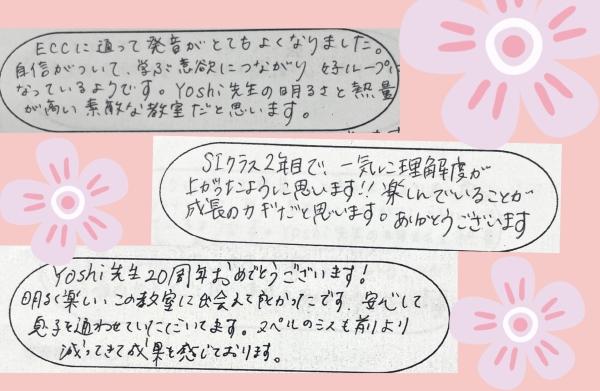 ECCに通って発音がとてもよくなりました。
自信がついて、学ぶ意欲につながり 好ループに
なっているようです。Yoshi先生の明るさと熱量
が高い素敵な教室だと思います。
SIクラス2年目で、一気に理解度が
上がったように思います!! 楽しんでいることが
成長のカギだと思います。ありがとうございます
Yoshi先生20周年おめでとうございます!
明るく楽しいこの教室に出会えて良かったです。安心して
息子を通わせていただいてます。スペルのミスも前より
減ってきて成果を感じております。